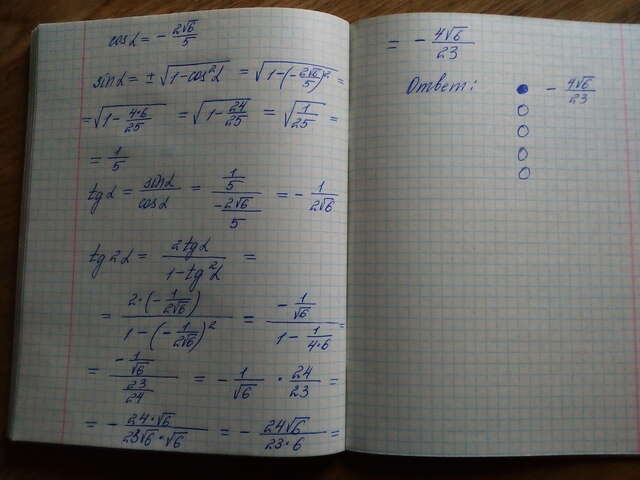 cosα = - 2√6/5
sinα = ± √(1-cos²α) = √(1-(-2√6/5)²) =
= √(1- 4·6/25) = √(1- 24/25) = √(1/25) =
= 1/5
tgα = sinα/cosα = (1/5)/(-2√6/5) = - 1/(2√6)
tg2α = 2tgα/(1-tg²α) =
= 2·(-1/(2√6))/(1-(-1/(2√6))²) = (-1/√6)/(1- 1/(4·6)) =
= (-1/√6)/(23/24) = - 1/√6 · 24/23 =
= - 24·√6/(23√6·√6) = - 24√6/(23·6) =
= - 4√6/23
Ответ: - 4√6/23